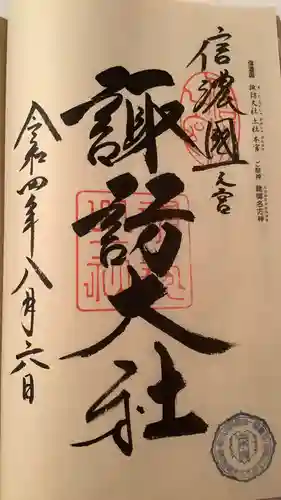 信濃國一之宮
諏訪大社
令和四年八月六日
信濃國
諏訪大社 上社 本宮
ご祭神 建御名方神